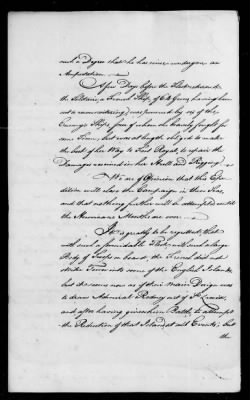 such a Degree that he has since undergone an
Amputation.
A few Days before the Fleet returned
the Solitaire, a French Ship of 64 Guns, having been
out a reconnoitering, was pursued by six of the
Enemy's Ships, four of whom she bravely fought for
some Time, but was at length obliged to make
the best of her Way to Fort Royal, to repair the
Damages received in her Hull and Rigging.
We are of Opinion that this Expe-
dition will close the Campaign in these Seas,
and that nothing further will be attempted until
the Hurricane Months are over.
It is greatly to be regretted, that
with such a formidable Fleet, with such a large
Body of Troops on board, the French did not
strike Terror into some of the English Islands,
but it seems now as if their main Design was
to draw Admiral Rodney out of St. Lucia,
and after having given him Battle, to attempt
the Reduction of that Island at all Events; but
the